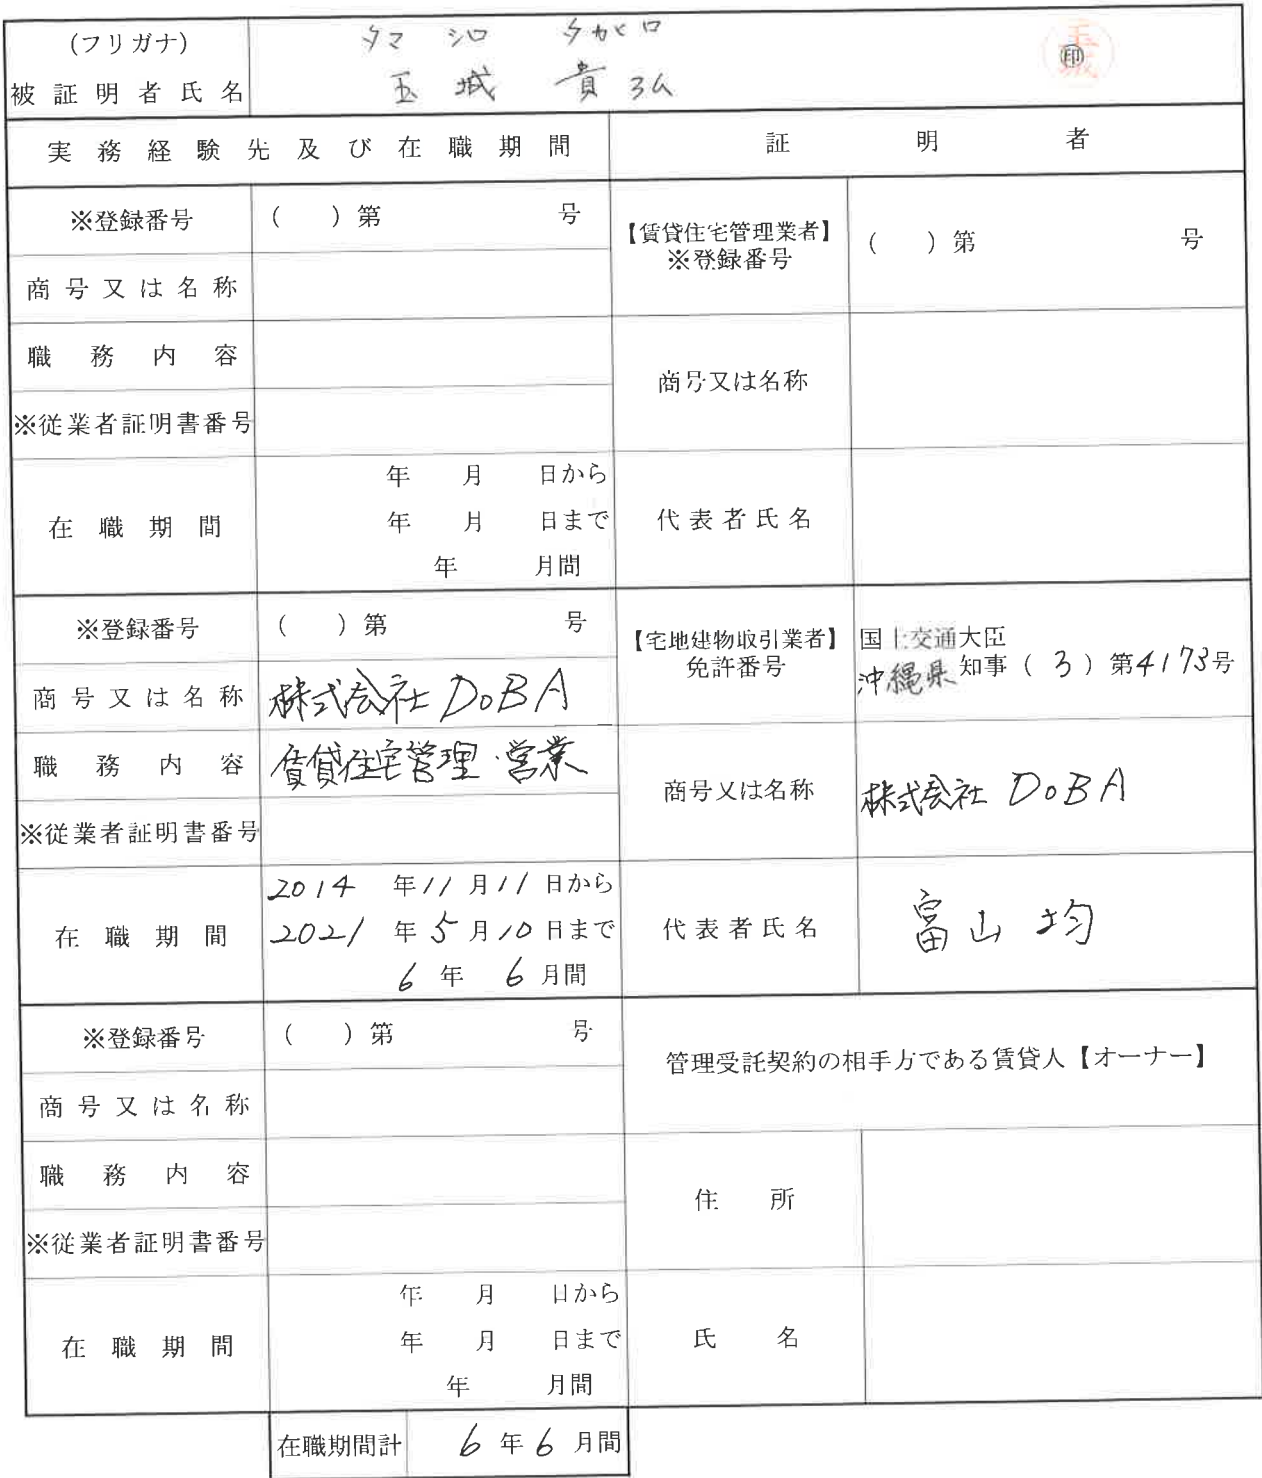 (フリガナ) タマ シロ タカヒロ
被証明者氏名 玉城 貴弘 ㊞ 玉城
実務経験先及び在職期間 証明者
※登録番号 ( ) 第 号 【賃貸住宅管理業者】 ※登録番号 ( ) 第 号
商号又は名称
職務内容 商号又は名称
※従業者証明書番号
在職期間 年 月 日から
年 月 日まで 代表者氏名
年 月間
※登録番号 ( ) 第 号 【宅地建物取引業者】 免許番号 国土交通大臣
沖縄県 知事 ( 3 ) 第4173号
商号又は名称 株式会社 DoBA
職務内容 賃貸住宅管理・営業 商号又は名称 株式会社 DoBA
※従業者証明書番号
在職期間 2014 年 11 月 11 日から
2021 年 5 月 10 日まで 代表者氏名 富山 均
6 年 6 月間
※登録番号 ( ) 第 号 管理受託契約の相手方である賃貸人【オーナー】
商号又は名称
職務内容 住所
※従業者証明書番号
在職期間 年 月 日から
年 月 日まで 氏名
年 月間
在職期間計 6 年 6 月間